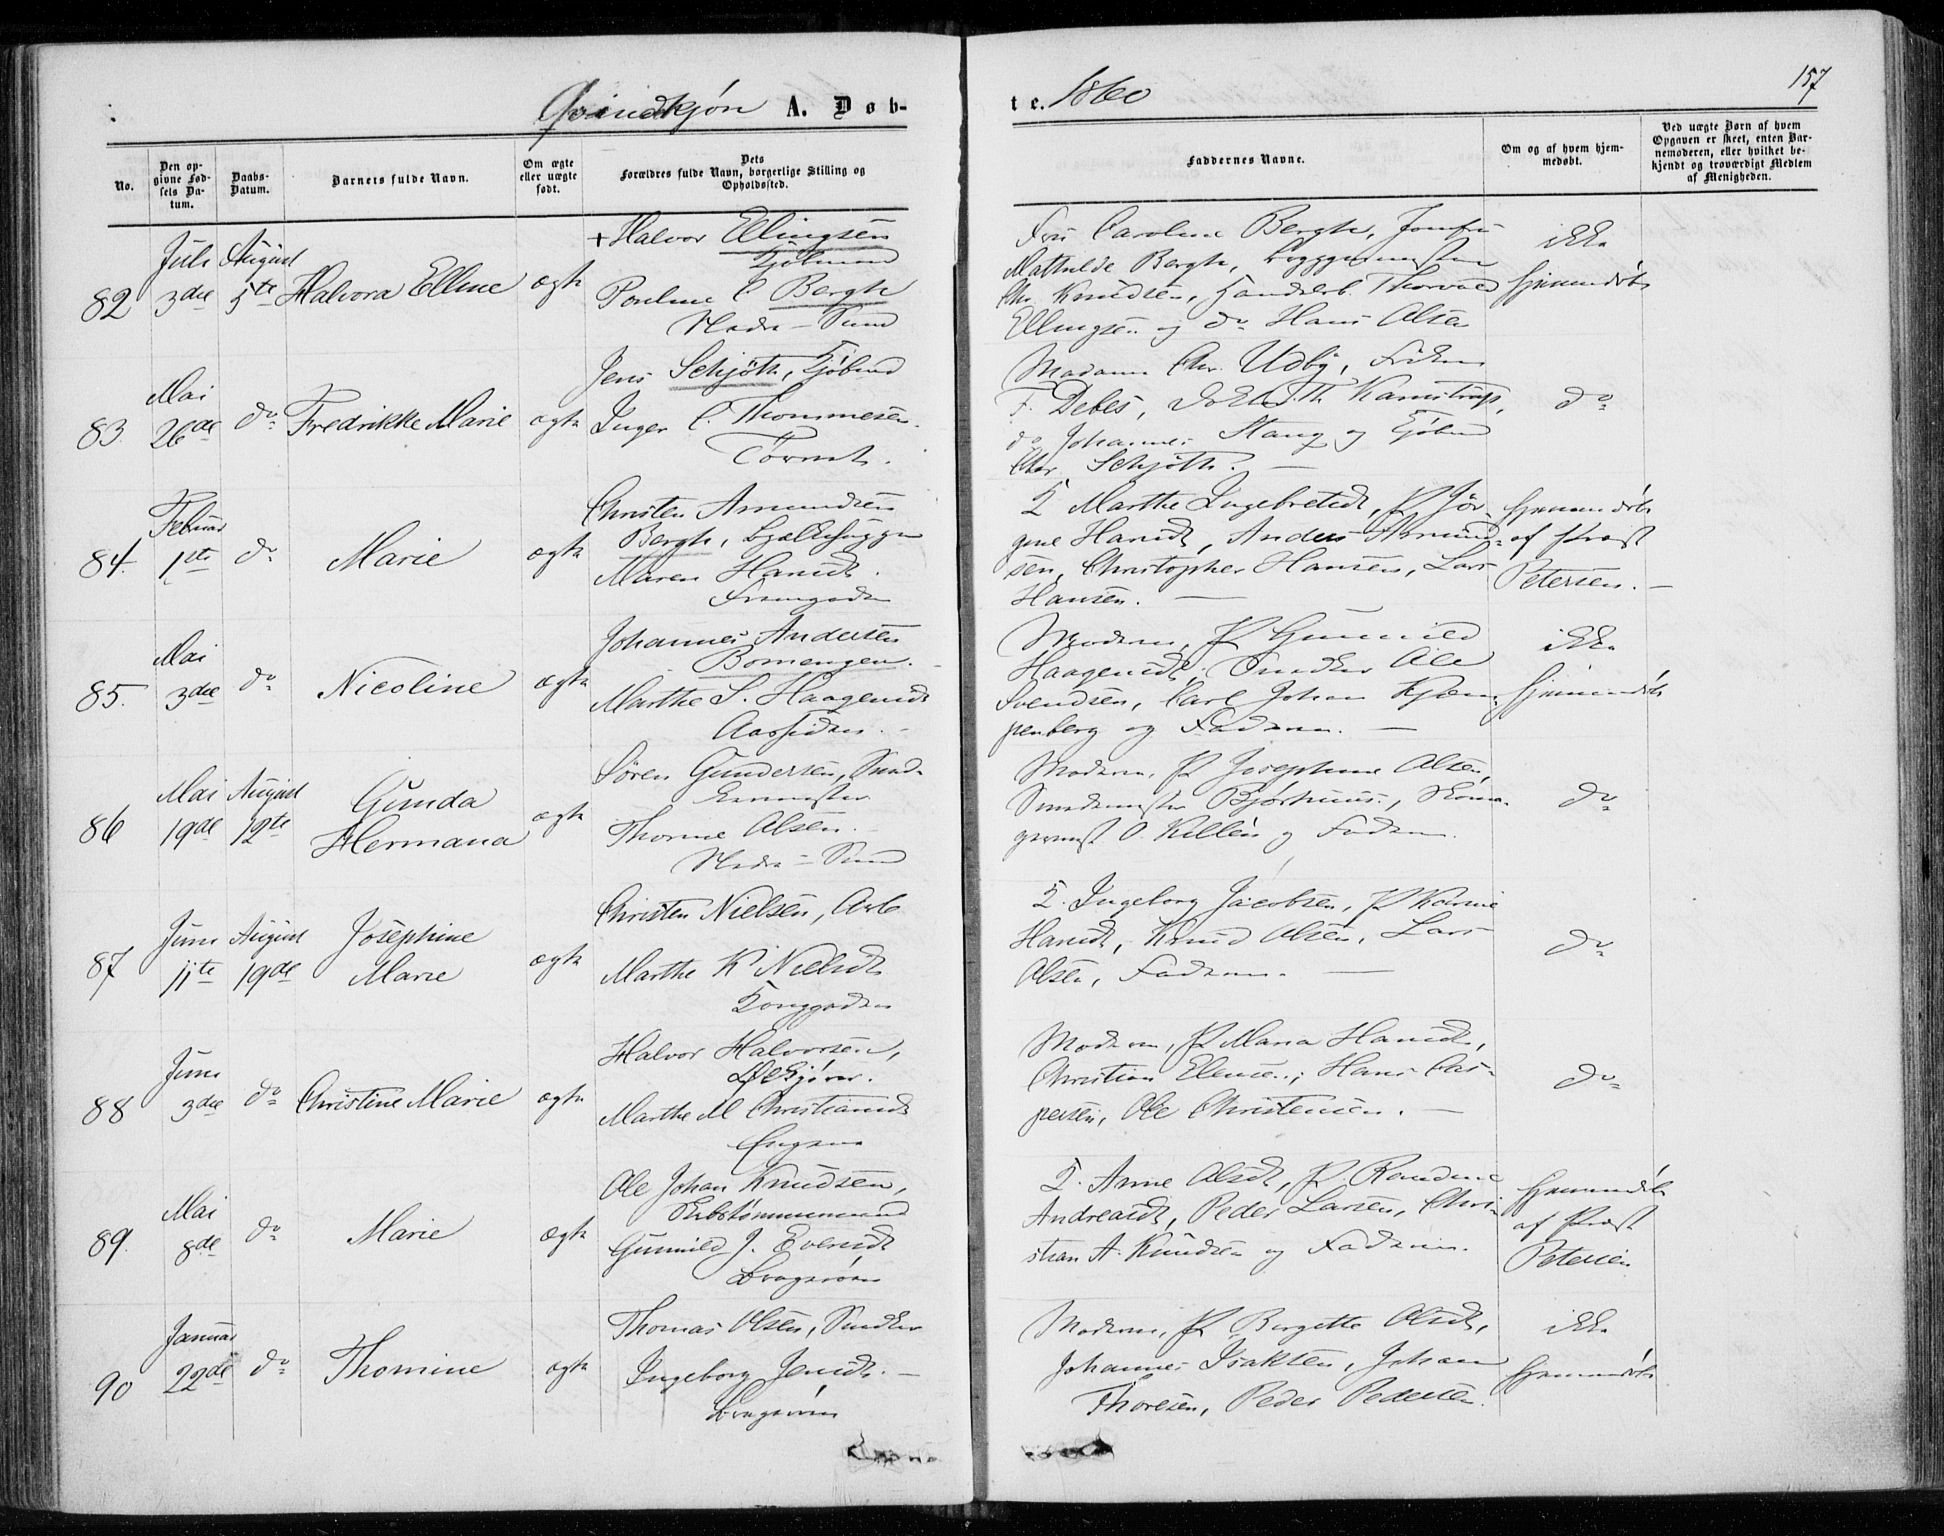 Qvindekjøn A. Døb-
te. 1860
157
No.
Den op-
givne Fød-
sels Da-
tum.
Daabs-
Datum.
Barnets fulde Navn.
Om ægte
eller uægte
født.
Dets
Forældres fulde Navn, borgerlige Stilling og
Opholdssted.
Faddernes Navne.
Om og af hvem hjem-
medøbt.
Ved uægte Børn af hvem
Opgaven er skeet, enten Bar-
nemoderen, eller hvilket be-
kjendt og troværdigt Medlem
af Menigheden.
82
Juli
3die
August
5te
Halvora Elline
ægte
+ Halvor Ellingsen
Pouline C Bergh
Nedre-Sund
Caroline Bergh, Jomfru
Mathilde Bergh,
Chr. Knudsen, Handelsb. Thorvald
Ellingsen og do Hans Olsen
ikke
hjemmedøbt
83
Mai
26de
do
Fredrikke Marie
ægte
Jens Schjøth, Kjøbmd
Inger C. Thommesen
Torvet.
Madame Chr. Udby, Frøken
F. Debes, Th. Kamstrup,
do Johannes Stang og Kjøbmd
Chr. Schjøth.
do
84.
Februar
1ste
do
Marie
ægte
Christen Amundsen
Bergh, Bjælkehugger
Maren Hansdt.
K Marthe Ingebretsdt, P Jør-
gine Hansdt, Anders Amund-
sen, Christopher Hansen, Lars
Hansen.
hjemmedøbt
af Præst
Petersen.
85.
Mai
3die
do
Nicoline
ægte
Johannes Andersen
Bomengen.
Marthe S. Haagensdt
Aassiden.
Moderen, P Gunnild
Haagensdt, Snedker Ole
Svendsen, Carl Johan Kjem-
penberg og Faderen.
ikke
hjemmedøbt
86
Mai
19de
August
12te
Gunda
Hermana
ægte
Søren Gundersen, Sned-
kermester
Thorine Olsen.
Nedre-Sund
Moderen, P Josephine Olsen,
Snedkermester Bjørhuus, Skoma-
germst O. Killén og Faderen.
do
87
Juni
11te
August
19de
Josephine
Marie
ægte
Christen Nielsen, Arb
Marthe K Nielsdt
Konggaden
K. Ingeborg Jacobsen, P Karine
Hansdt, Knud Olsen, Lars
Olsen, Faderen.
do
88
Juni
3die
do
Christine Marie
ægte
Halvor Halvorsen,
Marthe M Christiansdt
Engene
Moderen, P Maria Hansdt,
Christian Elensen, Hans Cas-
persen, Ole Christensen.
do
89.
Mai
8de
do
Marie
ægte
Ole Johan Knudsen,
Gunnild J. Evensdt
Bragerøen
K. Anne Olsdt, P. Randine
Andreasdt, Peder Larsen, Chri-
stian A. Knudsen og Faderen.
hjemmedøbt
af Præst
Petersen
90
Januar
22de
do
Thomine
ægte
Thomas Olsen, Snedker
Ingeborg Jensdt.
Bragerøen
Moderen, P Bergette Olsdt,
Johannes Isaksen, Johan
Thoresen, Peder Pedersen.
ikke
hjemmedøbt